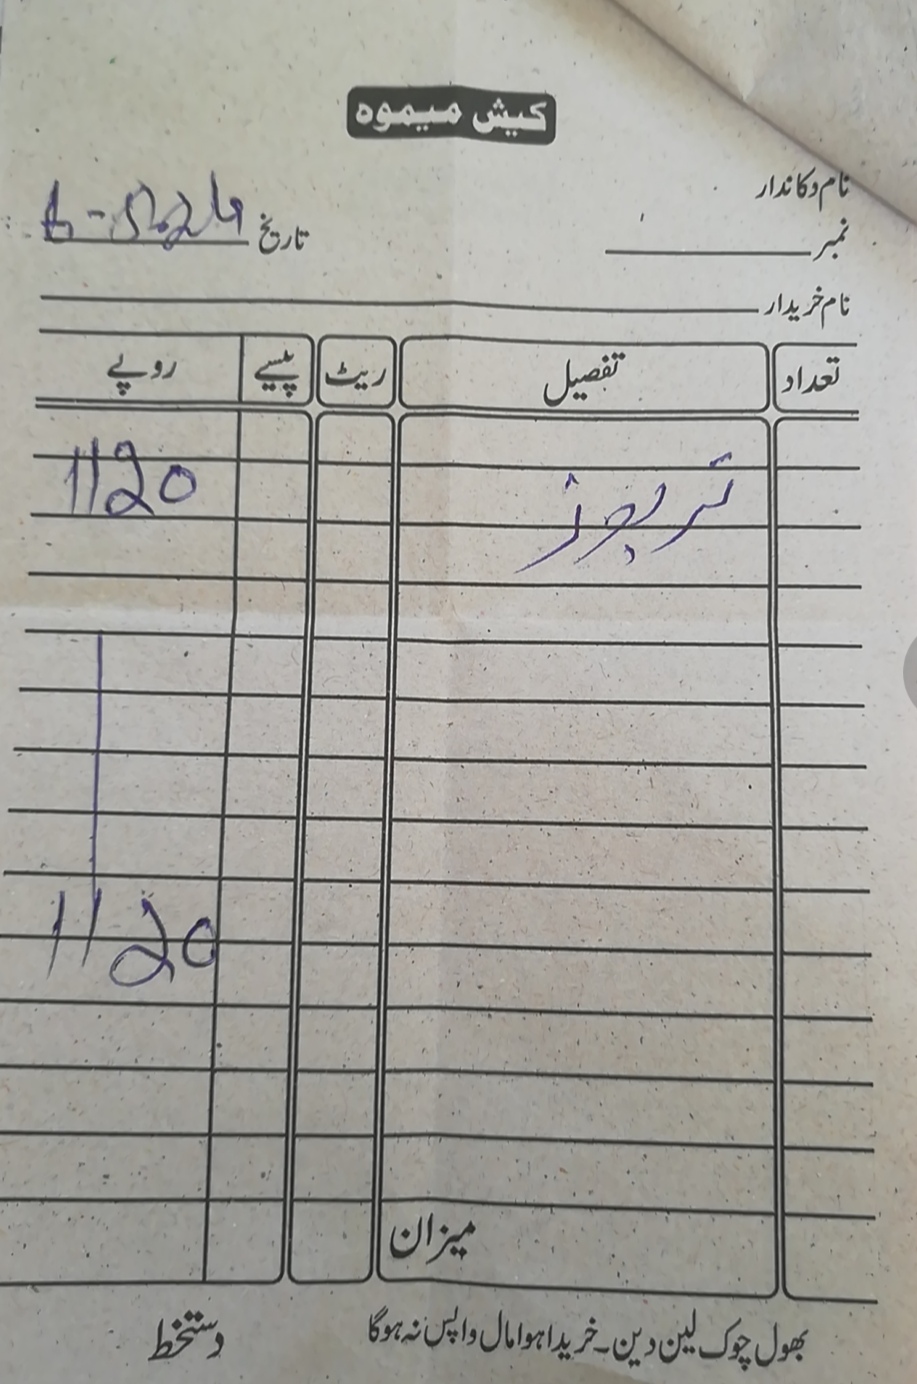 کیش میموہ
نام دکاندار
نمبر تاریخ
نام خریدار
تعداد تفصیل ریٹ پیسے روپے
تربوز 1120
1120
میزان
بھول چوک لین دین۔ خریدا ہوا مال واپس نہ ہوگا دستخط